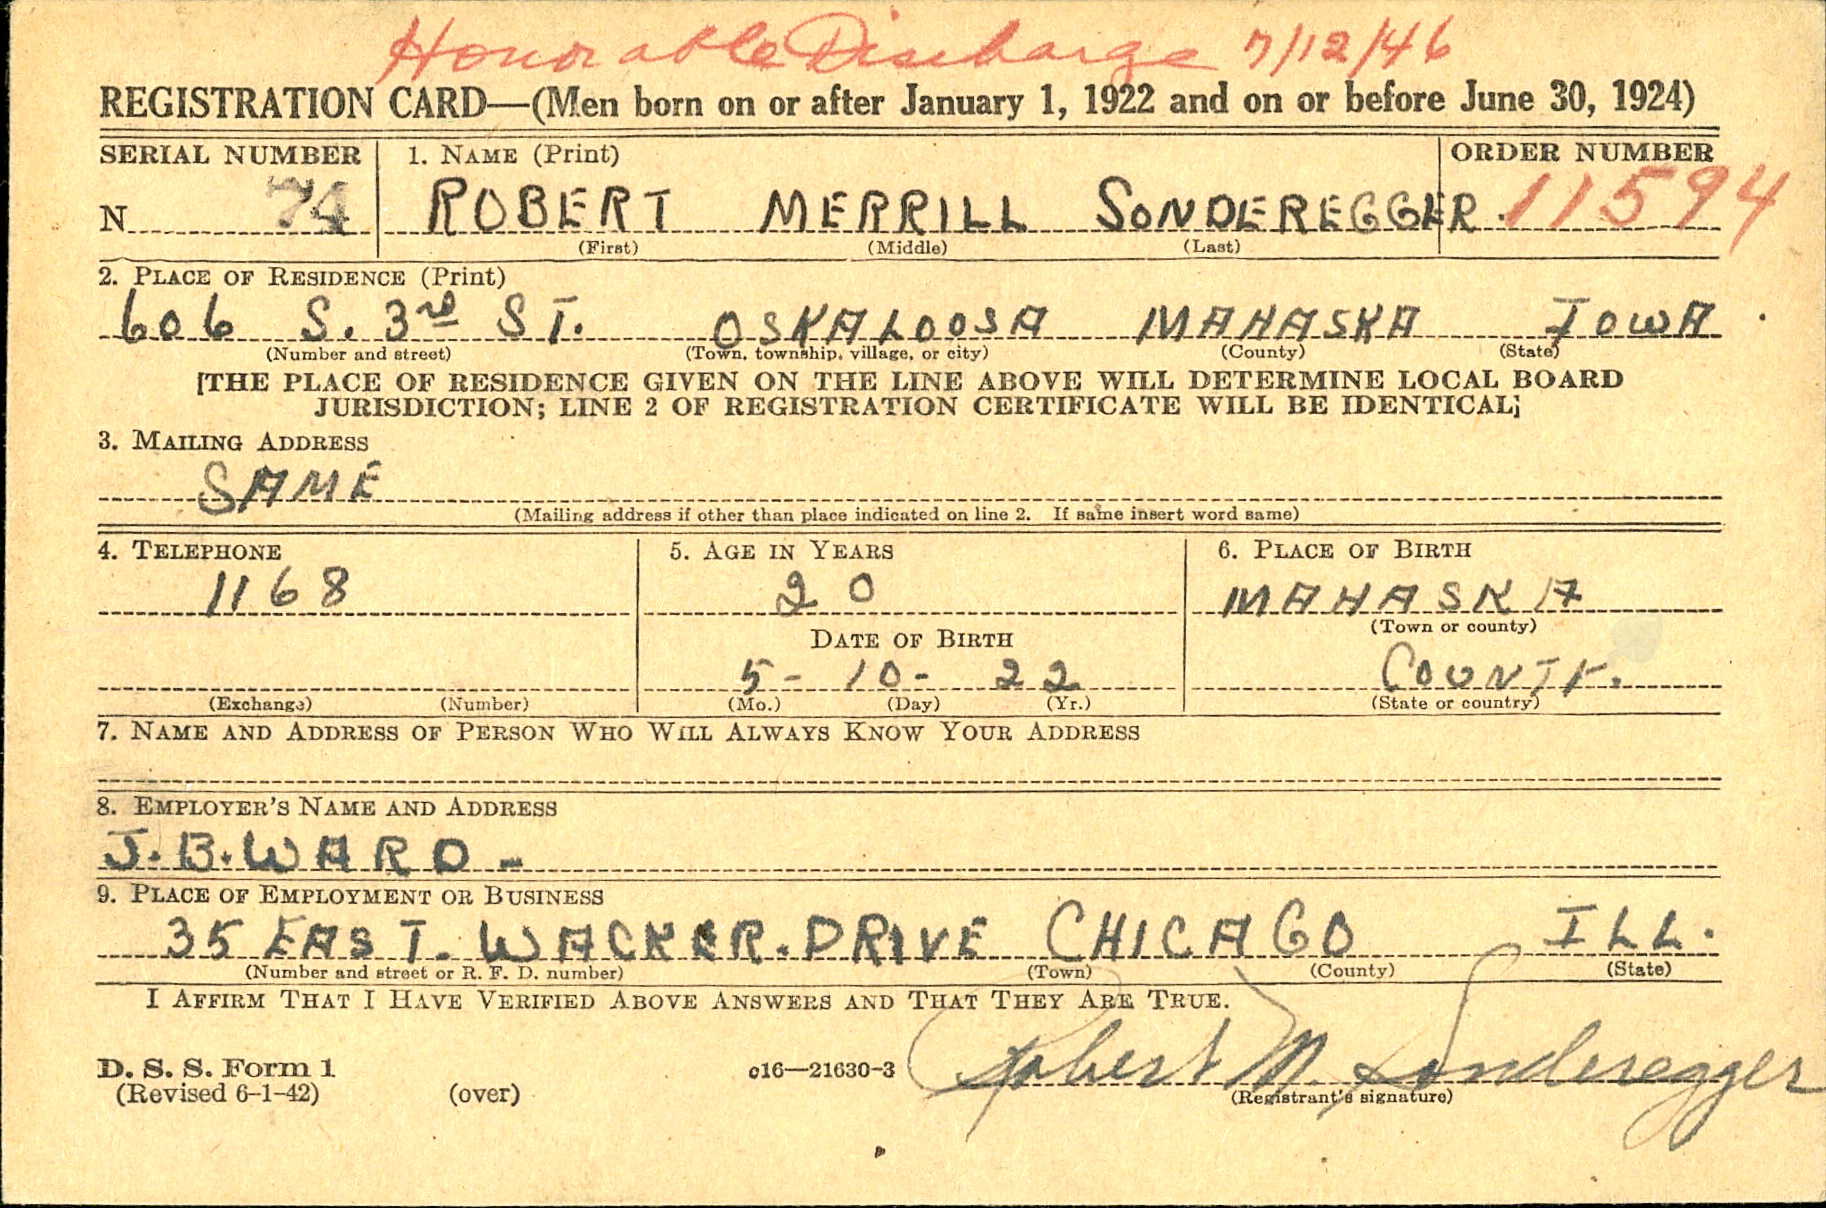 Honorable Discharge 7/12/46
REGISTRATION CARD—(Men born on or after January 1, 1922 and on or before June 30, 1924)
SERIAL NUMBER 1. NAME (Print) ORDER NUMBER
N 74 ROBERT MERRILL SONDEREGGER 11594
(First) (Middle) (Last)
2. PLACE OF RESIDENCE (Print)
606 S. 3rd ST. OSKALOOSA MAHASKA IOWA
(Number and street) (Town, township, village, or city) (County) (State)
[THE PLACE OF RESIDENCE GIVEN ON THE LINE ABOVE WILL DETERMINE LOCAL BOARD
JURISDICTION; LINE 2 OF REGISTRATION CERTIFICATE WILL BE IDENTICAL]
3. MAILING ADDRESS
SAME
(Mailing address if other than place indicated on line 2. If same insert word same)
4. TELEPHONE 5. AGE IN YEARS 6. PLACE OF BIRTH
1168 20 MAHASKA
DATE OF BIRTH (Town or county)
5- 10- 22 COUNTY.
(Exchange) (Number) (Mo.) (Day) (Yr.) (State or country)
7. NAME AND ADDRESS OF PERSON WHO WILL ALWAYS KNOW YOUR ADDRESS
8. EMPLOYER'S NAME AND ADDRESS
J.B. WARD -
9. PLACE OF EMPLOYMENT OR BUSINESS
35 EAST. WACKER. DRIVE CHICAGO ILL.
(Number and street or R. F. D. number) (Town) (County) (State)
I AFFIRM THAT I HAVE VERIFIED ABOVE ANSWERS AND THAT THEY ARE TRUE.
D. S. S. Form 1 c16—21630-3 Robert M. Sonderegger
(Revised 6-1-42) (over) (Registrant's signature)